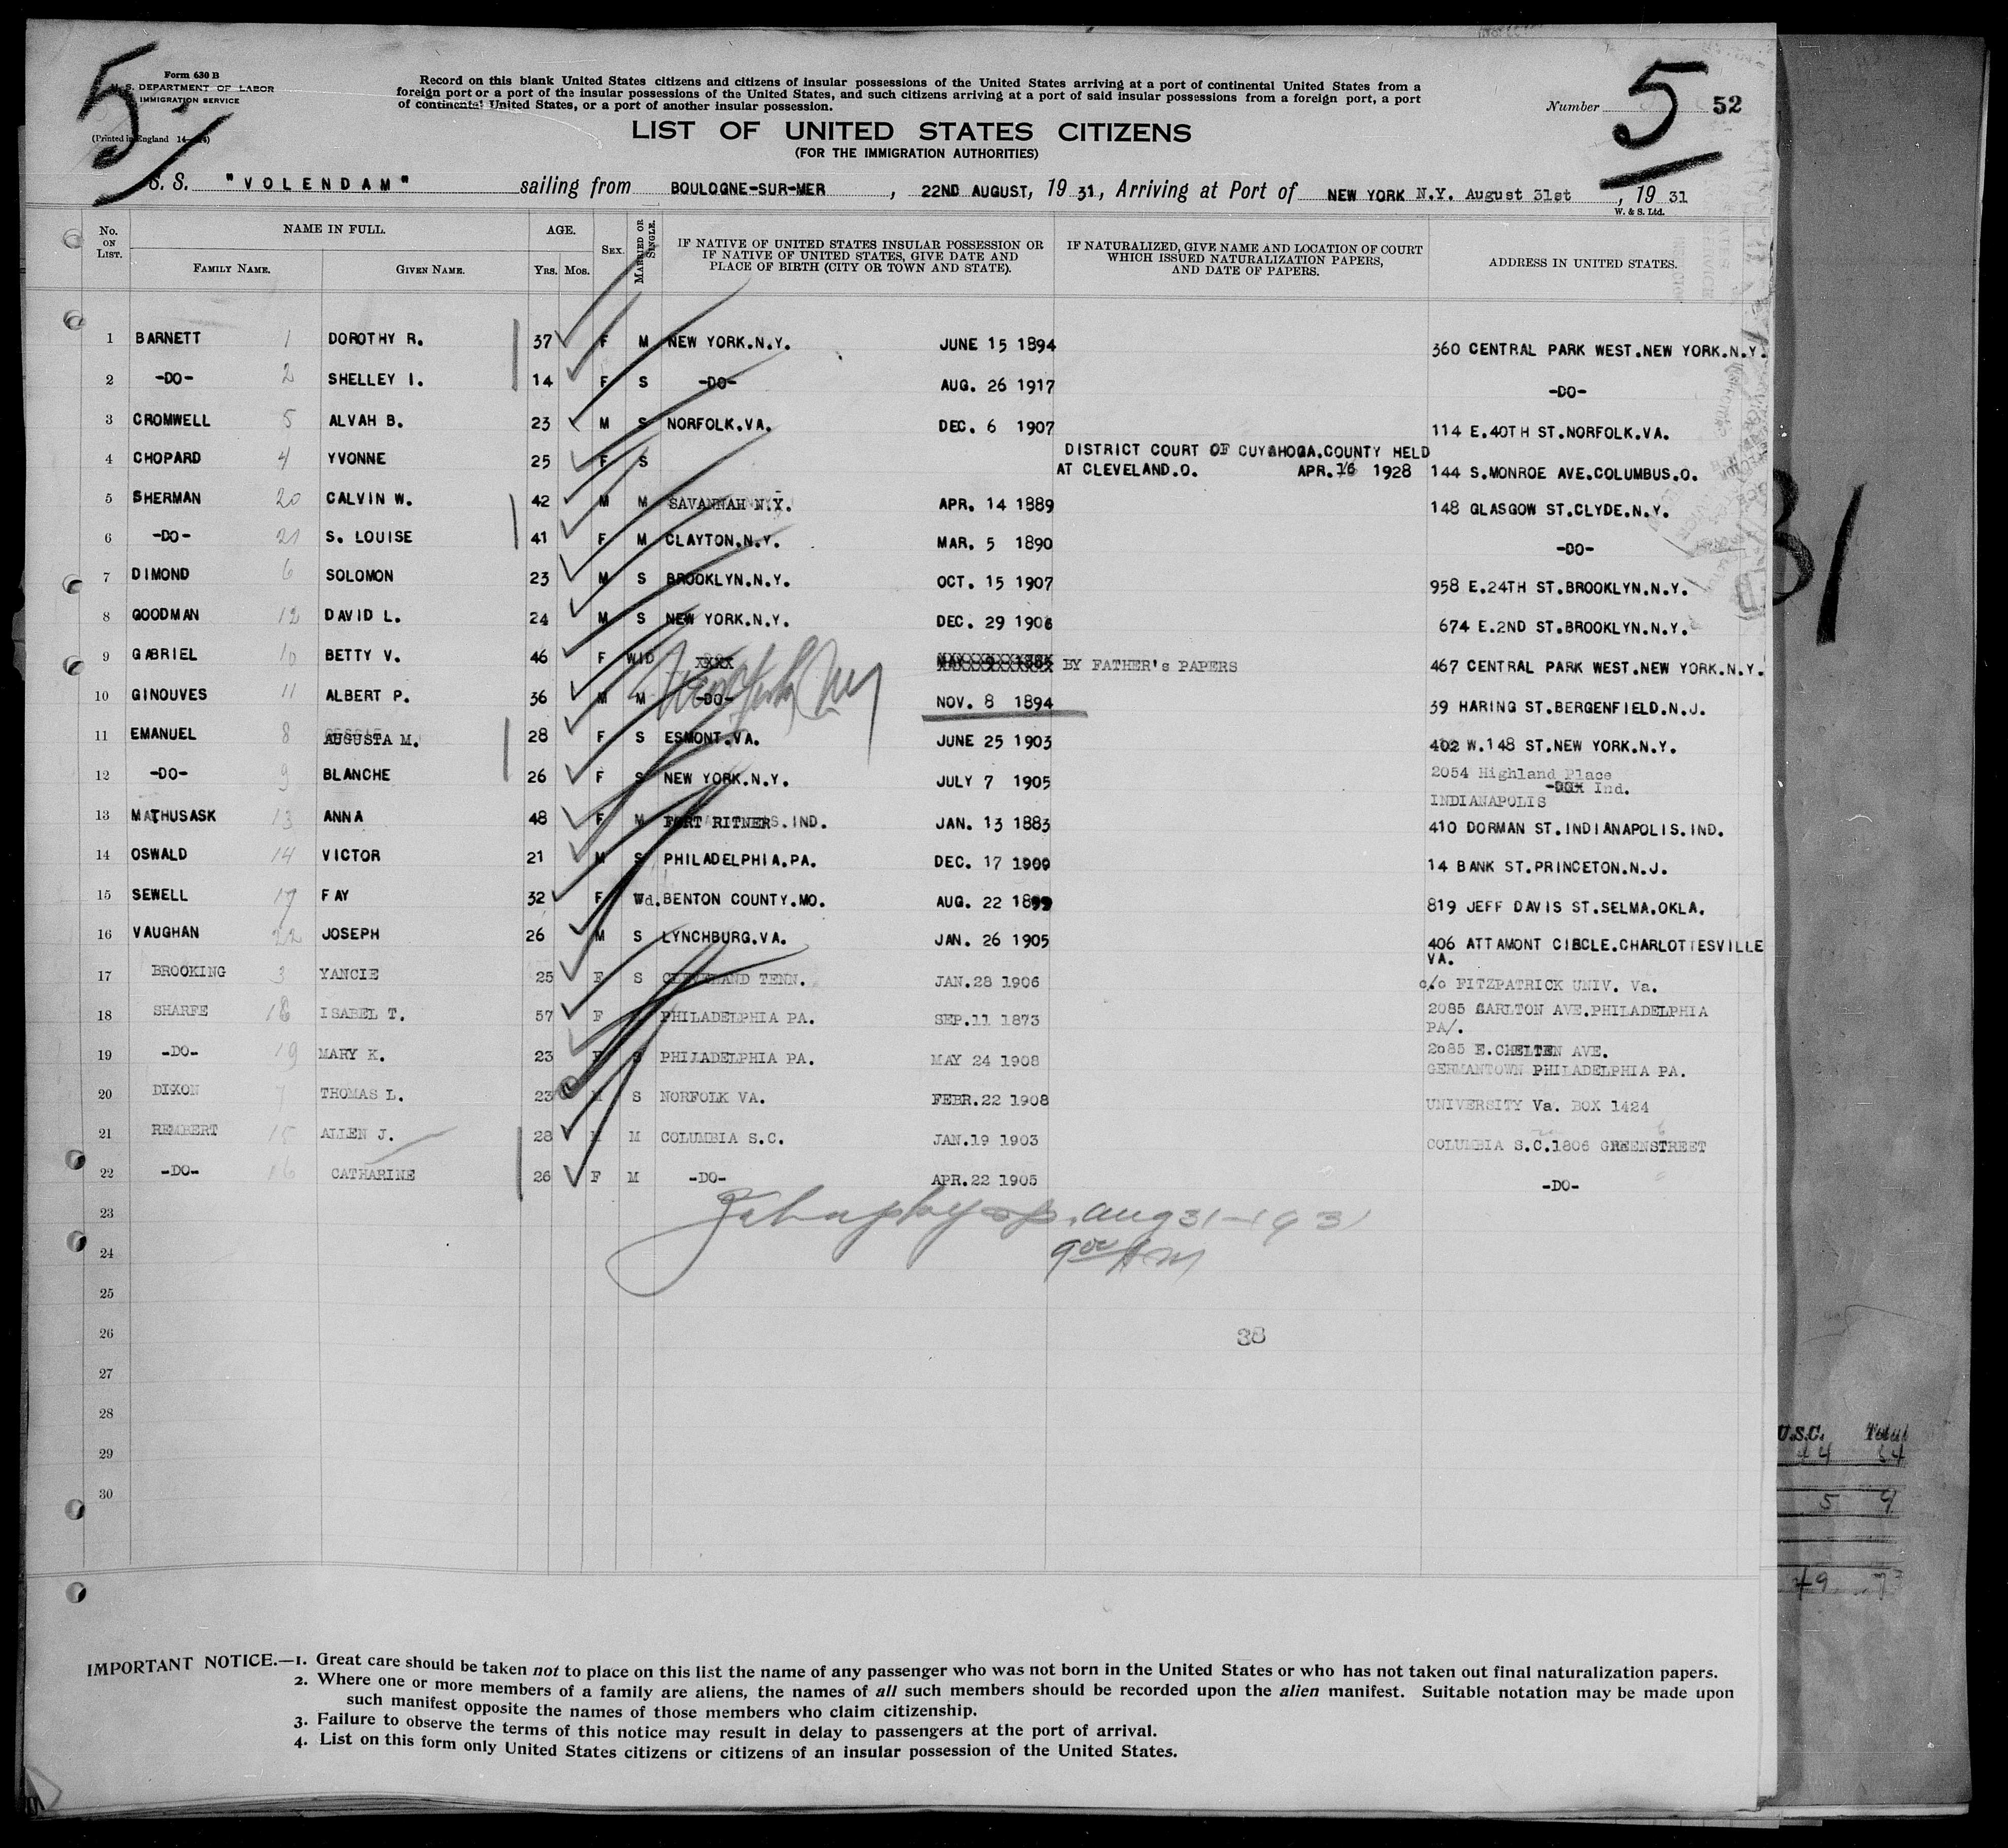 5
Form 630 B
U. S. DEPARTMENT OF LABOR
IMMIGRATION SERVICE
(Printed in England
Record on this blank United States citizens and citizens of insular possessions of the United States arriving at a port of continental United States from a
foreign port or a port of the insular possessions of the United States, and such citizens arriving at a port of said insular possessions from a foreign port, a port
of continental United States, or a port of another insular possession.
Number 5 52
LIST OF UNITED STATES CITIZENS
(FOR THE IMMIGRATION AUTHORITIES)
S. S. "VOLENDAM" sailing from BOULOGNE-SUR-MER, 22ND AUGUST, 19 31, Arriving at Port of NEW YORK N.Y. August 31st, 19 31
W. & S. Ltd.
No. ON LIST. NAME IN FULL. FAMILY NAME. GIVEN NAME. AGE. Yrs. Mos. SEX. MARRIED OR SINGLE. IF NATIVE OF UNITED STATES INSULAR POSSESSION OR IF NATIVE OF UNITED STATES, GIVE DATE AND PLACE OF BIRTH (CITY OR TOWN AND STATE). IF NATURALIZED, GIVE NAME AND LOCATION OF COURT WHICH ISSUED NATURALIZATION PAPERS, AND DATE OF PAPERS. ADDRESS IN UNITED STATES.
1 BARNETT 1 DOROTHY R. 37 F M NEW YORK.N.Y. JUNE 15 1894 360 CENTRAL PARK WEST.NEW YORK.N.Y.
2 -DO- 2 SHELLEY I. 14 F S -DO- AUG. 26 1917 -DO-
3 CROMWELL 5 ALVAH B. 23 M S NORFOLK.VA. DEC. 6 1907 114 E.40TH ST.NORFOLK.VA.
4 CHOPARD 4 YVONNE 25 F S DISTRICT COURT OF CUYAHOGA.COUNTY HELD
AT CLEVELAND.O. APR.16 1928 144 S.MONROE AVE.COLUMBUS.O.
5 SHERMAN 20 CALVIN W. 42 M M SAVANNAH N.Y. APR. 14 1889 148 GLASGOW ST.CLYDE.N.Y.
6 -DO- 21 S. LOUISE 41 F M CLAYTON.N.Y. MAR. 5 1890 -DO-
7 DIMOND 6 SOLOMON 23 M S BROOKLYN.N.Y. OCT. 15 1907 958 E.24TH ST.BROOKLYN.N.Y.
8 GOODMAN 12 DAVID L. 24 M S NEW YORK.N.Y. DEC. 29 1906 674 E.2ND ST.BROOKLYN.N.Y.
9 GABRIEL 10 BETTY V. 46 F WID XXXX BY FATHER's PAPERS 467 CENTRAL PARK WEST.NEW YORK.N.Y.
10 GINOUVES 11 ALBERT P. 36 M M -DO- New York Ny NOV. 8 1894 39 HARING ST.BERGENFIELD.N.J.
11 EMANUEL 8 AUGUSTA M. 28 F S ESMONT.VA. JUNE 25 1903 402 W.148 ST.NEW YORK.N.Y.
12 -DO- 9 BLANCHE 26 F S NEW YORK.N.Y. JULY 7 1905 2054 Highland Place
-DOX Ind.
INDIANAPOLIS
13 MATHUSASK 13 ANNA 48 F M FORT RITNERS.IND. JAN. 13 1883 410 DORMAN ST.INDIANAPOLIS.IND.
14 OSWALD 14 VICTOR 21 M S PHILADELPHIA.PA. DEC. 17 1909 14 BANK ST.PRINCETON.N.J.
15 SEWELL 17 FAY 32 F Wd. BENTON COUNTY.MO. AUG. 22 1899 819 JEFF DAVIS ST.SELMA.OKLA.
16 VAUGHAN 22 JOSEPH 26 M S LYNCHBURG.VA. JAN. 26 1905 406 ATTAMONT CIBCLE.CHARLOTTESVILLE
VA.
17 BROOKING 3 YANCIE 25 F S CLEVELAND TENN. JAN.28 1906 c/o FITZPATRICK UNIV. Va.
18 SHARFE 18 ISABEL T. 57 F PHILADELPHIA PA. SEP.11 1873 2085 CARLTON AVE.PHILADELPHIA
PA/.
19 -DO- 19 MARY K. 23 F S PHILADELPHIA PA. MAY 24 1908 2085 E.CHELTEN AVE.
GERMANTOWN PHILADELPHIA PA.
20 DIXON 7 THOMAS L. 23 M S NORFOLK VA. FEBR.22 1908 UNIVERSITY Va. BOX 1424
21 REMBERT 15 ALLEN J. 28 M M COLUMBIA S.C. JAN.19 1903 COLUMBIA S.C.1806 GREENSTREET
22 -DO- 16 CATHARINE 26 F M -DO- APR.22 1905 -DO-
23
Aug 31-1931
24
9 00 AM
25
26
38
27
28
29
30
U.S.C. Total
5 9
IMPORTANT NOTICE.—1. Great care should be taken not to place on this list the name of any passenger who was not born in the United States or who has not taken out final naturalization papers.
2. Where one or more members of a family are aliens, the names of all such members should be recorded upon the alien manifest. Suitable notation may be made upon
such manifest opposite the names of those members who claim citizenship.
3. Failure to observe the terms of this notice may result in delay to passengers at the port of arrival.
4. List on this form only United States citizens or citizens of an insular possession of the United States.